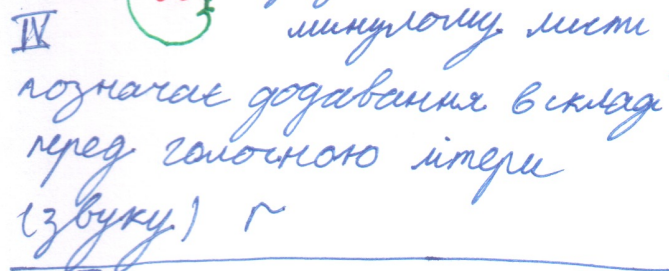 IV
минулому листі
позначає додавання в складі
перед голосною літери
(звуку) г